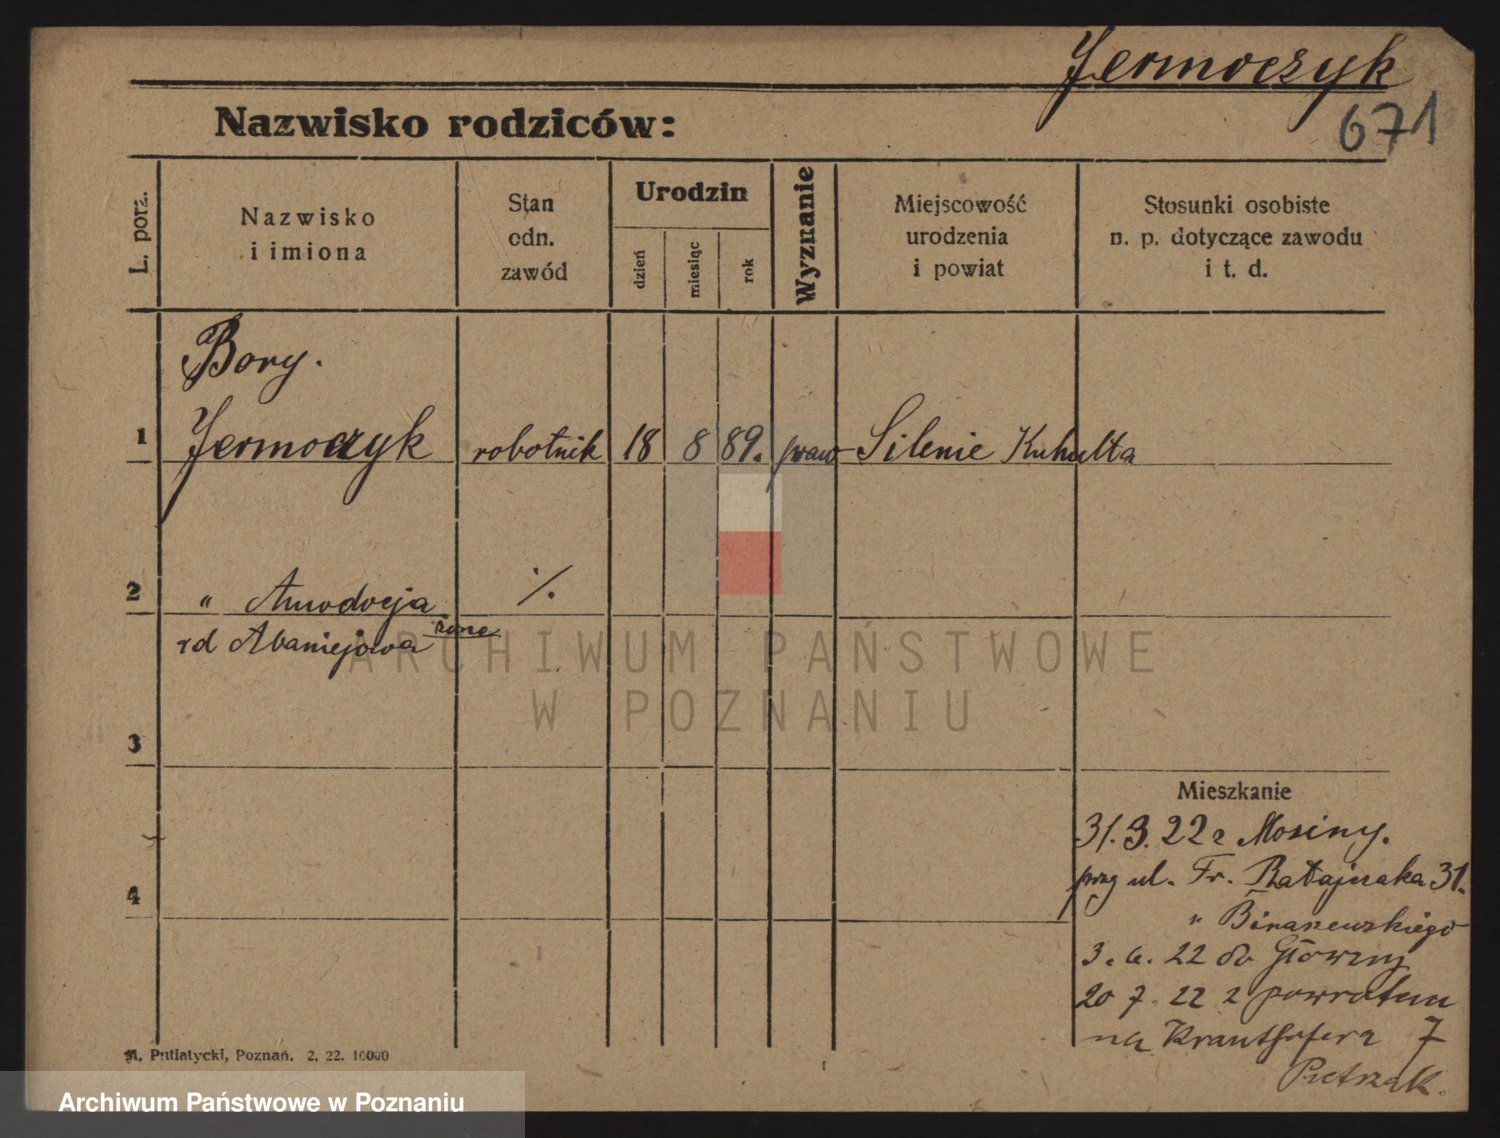 Jermoczyk
671
Nazwisko rodziców:
L. porz.
Nazwisko
i imiona
Stan
odn.
zawód
Urodzin
dzień
miesiąc
rok
Wyznanie
Miejscowość
urodzenia
i powiat
Stosunki osobiste
n. p. dotyczące zawodu
i t. d.
Bory.
1 Jermoczyk robotnik 18 8 89. praw Silenie Kuhulta
2 " ./.
żona
rd Abaniejowa
3
4
Mieszkanie
31.3.22 z Mosiny.
przy ul. Fr. Ratajczaka 31.
"
3. 6. 22 do Główny
20 7. 22 z powrotem
na Krauthofera 7
Pietrzak.
M. Putiatycki, Poznań. 2. 22. 10000
ARCHIWUM PAŃSTWOWE
W POZNANIU
Archiwum Państwowe w Poznaniu